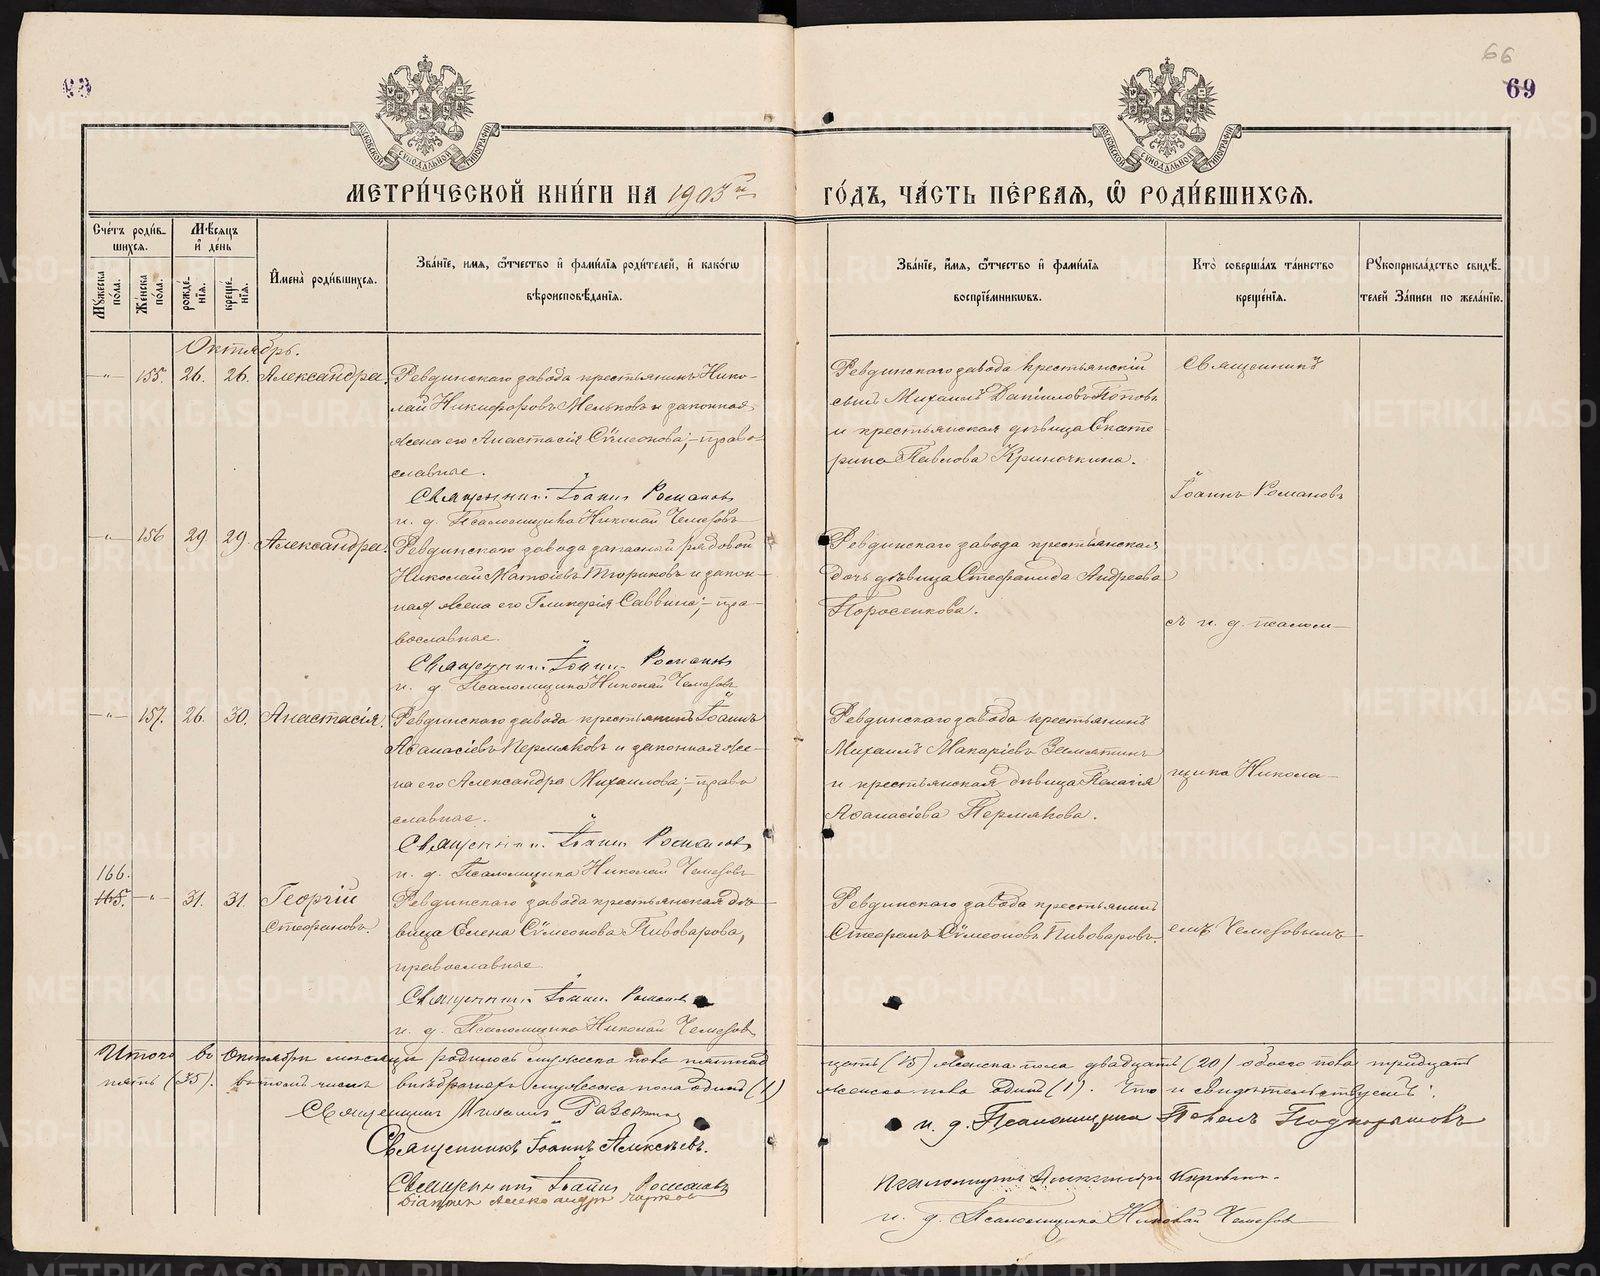 66
69
МОСКОВСКОЙ СѴНОДАЛЬНОЙ ТИПОГРАФІИ
МОСКОВСКОЙ СѴНОДАЛЬНОЙ ТИПОГРАФІИ
МЕТРИ́ЧЕСКОЙ КНИ́ГИ НА 1903й ГО́ДЪ, ЧА́СТЬ ПЕ́РВАЯ, Ѡ РОДИ́ВШИХСЯ.
Сче́тъ роди́вшихся.
Му́жеска по́ла.
Же́нска по́ла.
Мѣ́сяцъ и де́нь
рожде́нія.
креще́нія.
Имена̀ роди́вшихся.
Зва́ніе, имя, ѻтчество и фами́лія роди́телей, и како́гѡ вѣроисповѣ́данія.
Зва́ніе, и́мя, ѻтчество и фами́лія воспріе́мникѡвъ.
Кто̀ соверша́лъ та́инство креще́нія.
Рꙋкоприкла́дство свидѣ́телей За́писи по жела́нію.
Октябрь.
-"- 155. 26. 26. Александра.
Ревдинскаго завода крестьянинъ Нико-
лай Никифоровъ Мельковъ и законная
жена его Анастасія Сѵмеонова; - право-
славные.
Священникъ Іоаннъ Романовъ
и. д. Псаломщика Николай Чемезовъ
Ревдинскаго завода крестьянскій
сынъ Михаилъ Даніиловъ Поповъ
и крестьянская дѣвица Екате
рина Павлова Криночкина.
Священникъ
Іоаннъ Романовъ
-"- 156 29. 29. Александра.
Ревдинскаго завода запасной рядовой
Николай Матѳіевъ Тюриковъ и закон-
ная жена его Гликерія Саввина; - пра-
вославные.
Священникъ Іоаннъ Романовъ
и. д. Псаломщика Николай Чемезовъ
Ревдинскаго завода крестьянская
дочь дѣвица Стефанида Андреева
Поросенкова.
съ и. д. псалом-
-"- 157. 26. 30. Анастасія.
Ревдинскаго завода крестьянинъ Іоаннъ
Аѳанасіевъ Пермяковъ и законная же-
на его Александра Михаилова; - право
славные.
Священникъ Іоаннъ Романовъ
и. д. Псаломщика Николай Чемезовъ
Ревдинскаго завода крестьянинъ
Михаилъ Макаріевъ Замятинъ
и крестьянская дѣвица Пелагія
Аѳанасіева Пермякова.
щика Никола-
166.
165. -"- 31. 31. Георгій
Стефановъ.
Ревдинскаго завода крестьянская дѣ-
вица Елена Сѵмеонова Пивоварова,
православные
Священникъ Іоаннъ Романовъ
и. д. Псаломщика Николай Чемезовъ
Ревдинскаго завода крестьянинъ
Стефанъ Сѵмеоновъ Пивоваровъ.
емъ Чемезовымъ
Итого въ Октябрѣ мѣсяцѣ родилось мужеска пола пятнад
цать (15) женска пола двадцать (20) обоего пола тридцать
пять (35). въ томъ числѣ внѣбрачныхъ мужеска пола одинъ (1)
женска пола одинъ (1). Что и свидѣтельствуемъ:
Священникъ Михаилъ
и. д. Псаломщика Павелъ Подкорытовъ
Священникъ Іоаннъ Алексѣевъ.
Священникъ Іоаннъ Романовъ
Діаконъ Александръ
Псаломщикъ Александръ
и. д. Псаломщика Николай Чемезовъ
METRIKI.GASO-URAL.RU